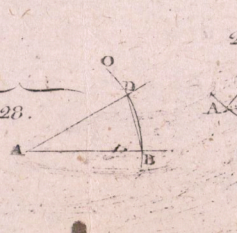 O
D
28.
A
A
B